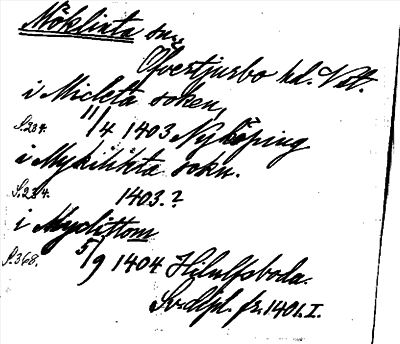 Möklinta sn.
Öfvertjurbo hd. Vstt.
i Micleta soken,
S. 204. 11/4 1403 Nyköping
i Mykilikta sokn.
S. 234. 1403.?
i Myclittom
S. 368. 5/9 1404 Hilulfsboda.
Sv. dipl. fr. 1401. I.